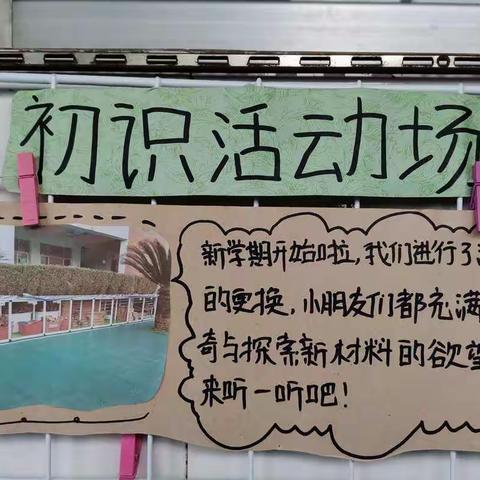 初识活动场
新学期开始啦,我们进行了
的更换,小朋友们都充满
奇与探索新材料的欲望
来听一听吧!